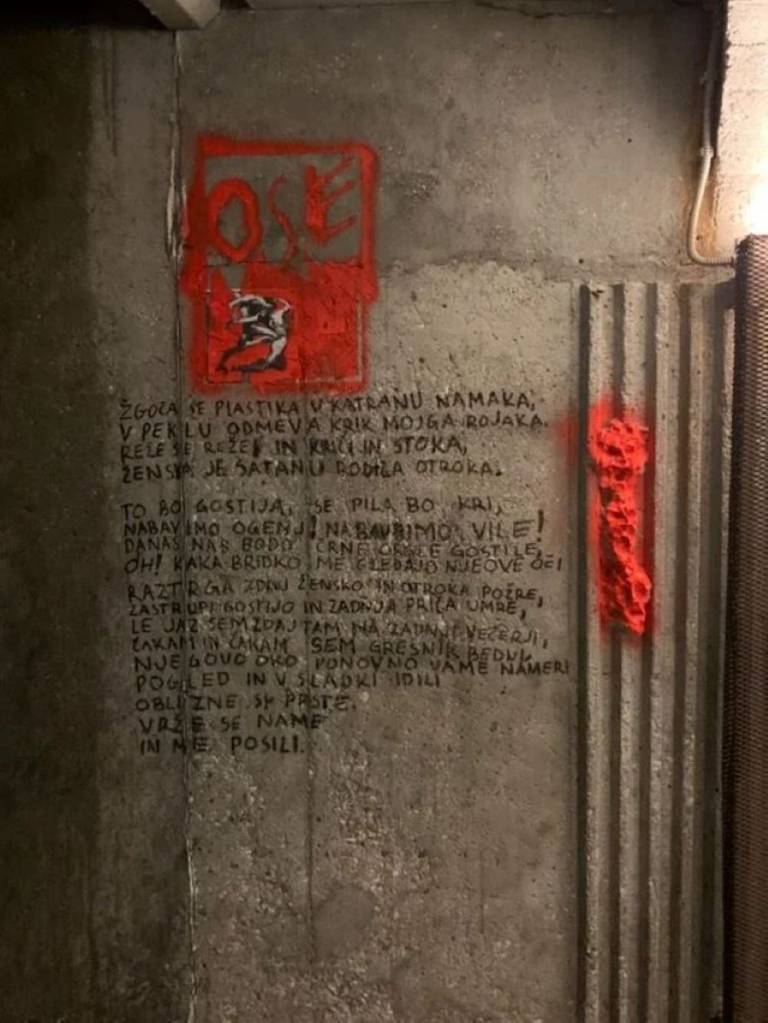 OSE
ŽGOČA SE PLASTIKA V KATRANU NAMAKA,
V PEKLU ODMEVA KRIK MOJGA ROJAKA.
REŽE SE REŽE IN KRIČI IN STOKA,
ŽENSKA JE SATANU RODILA OTROKA.
TO BO GOSTIJA, SE PILA BO KRI,
NABAVIMO OGENJ! NABAVIMO VILE!
DANAS NAS BODO ČRNE GOSTILE,
OH! KAKA BRIDKO ME GLEDAJO NJEGOVE OČI
RAZTRGA ZDAJ ŽENSKO IN OTROKA POŽRE,
ZASTRUPI GOSTIJO IN ZADNJA PRIČA UMRE,
LE JAZ SEM ZDAJ TAM NA ZADNJI VEČERJI,
ČAKAM IN ČAKAM SEM GREŠNIK BEDNI,
NJEGOVO OKO PONOVNO VAME NAMERI
POGLED IN V SLADKI IDILI
OBLIZNE SI PRSTE.
VRŽE SE NAME
IN ME POSILI.